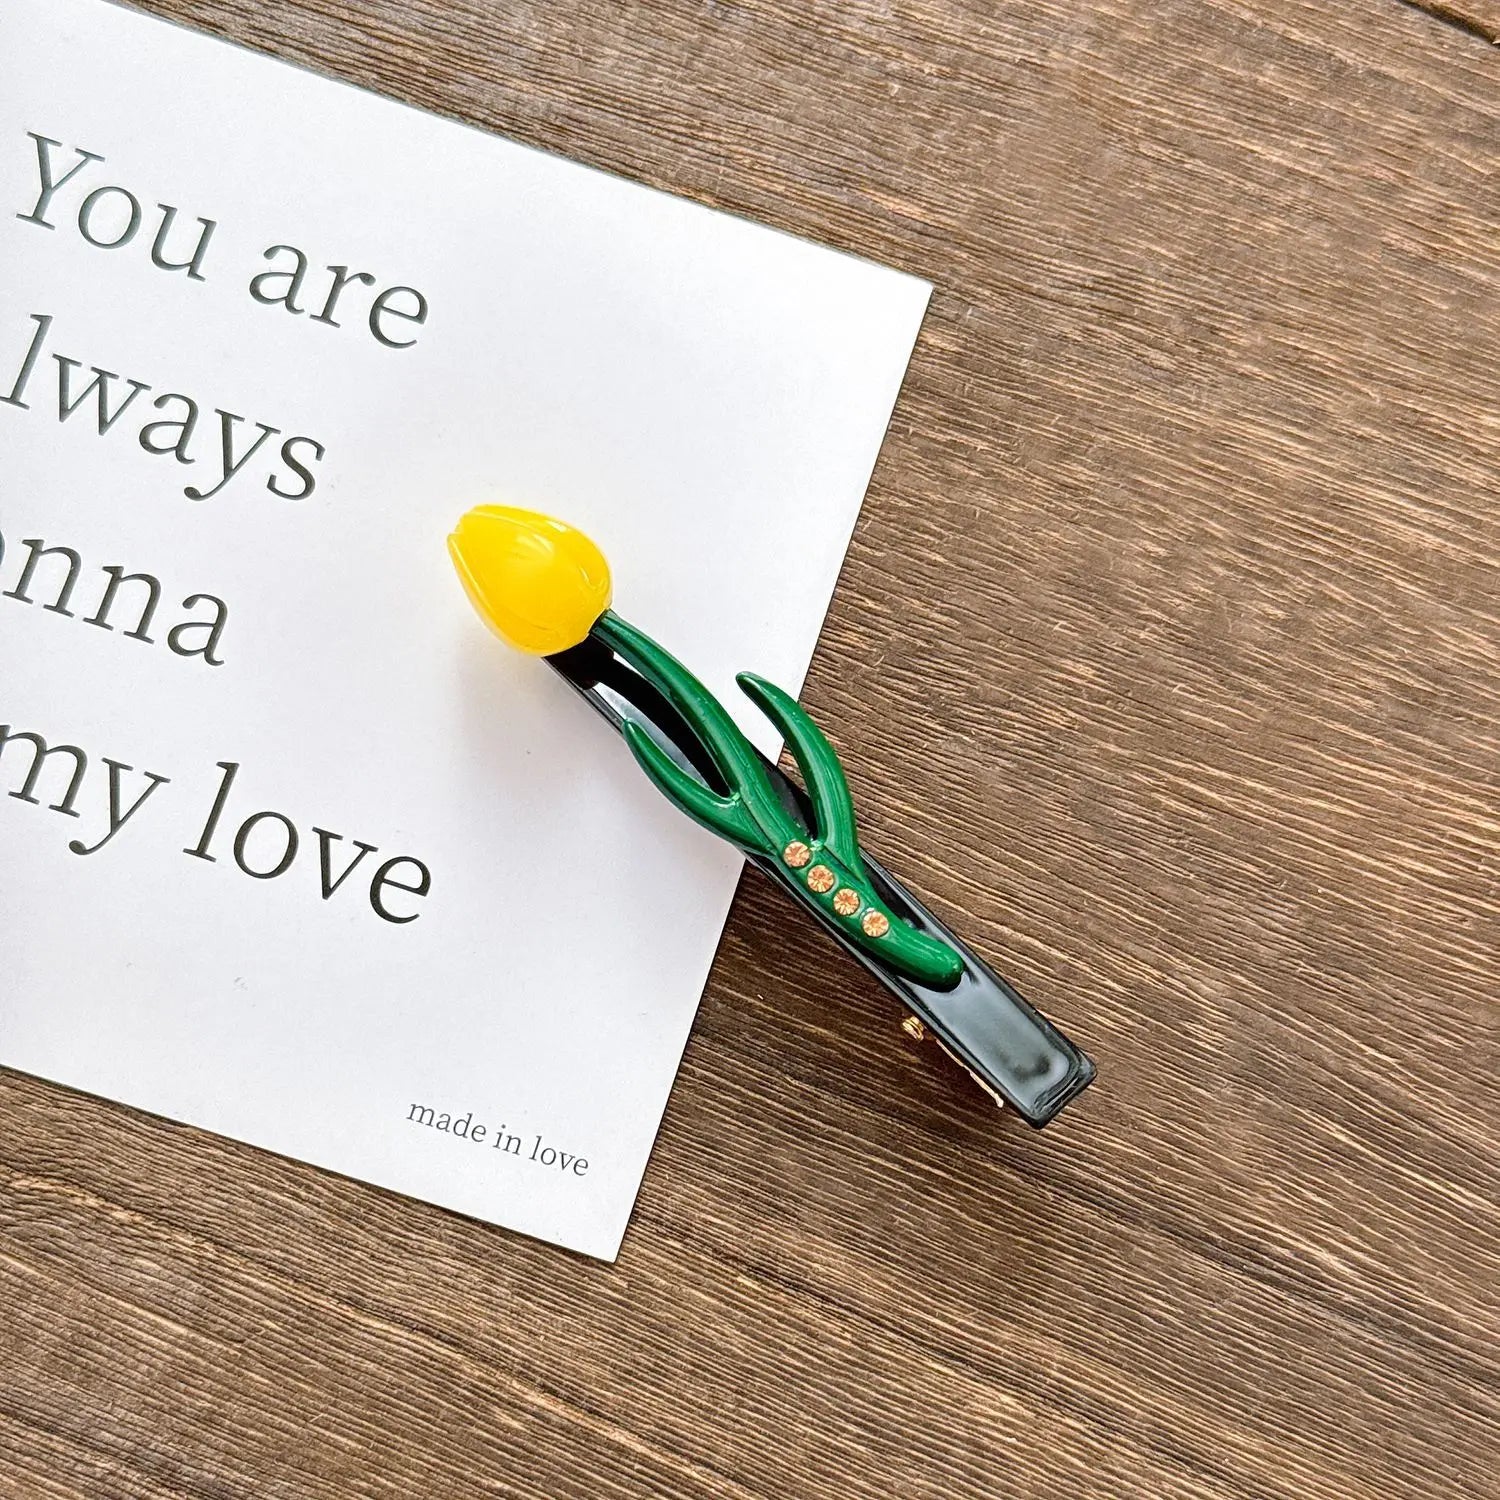 You are
lways
onna
my love
made in love